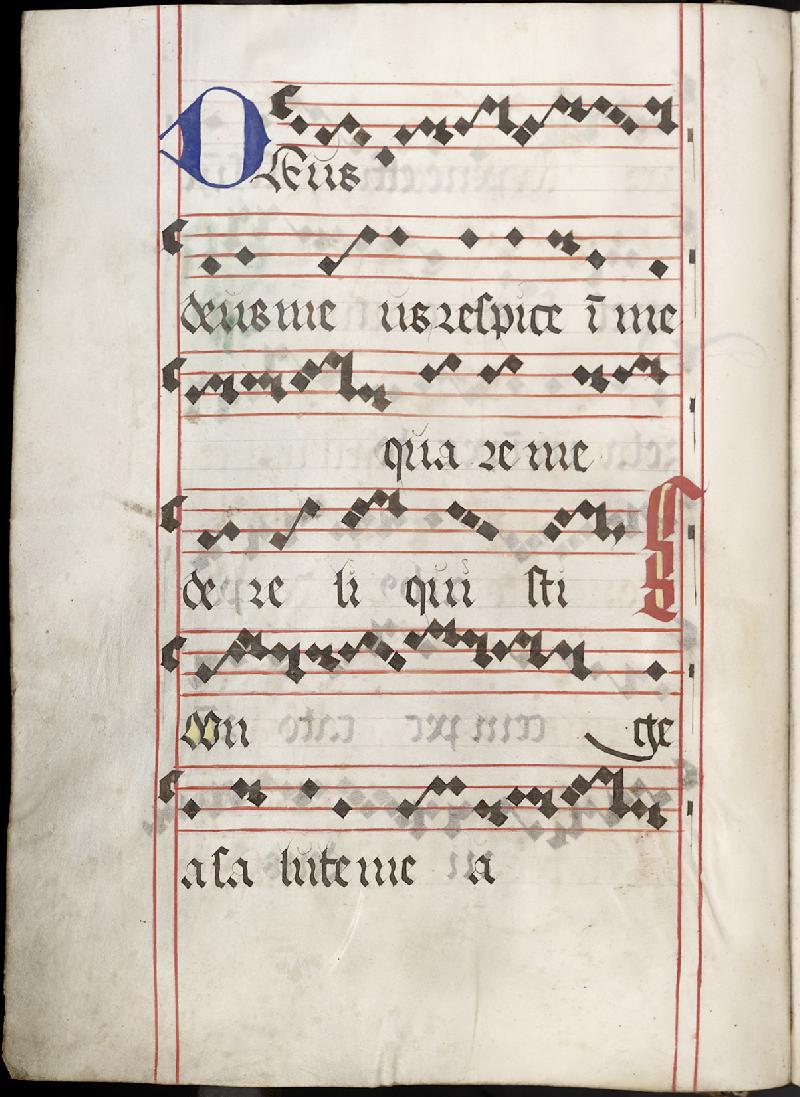 DEus
deus me us respice ī me
qua re me
de re li qui sti
Lon ge
a sa lute me a